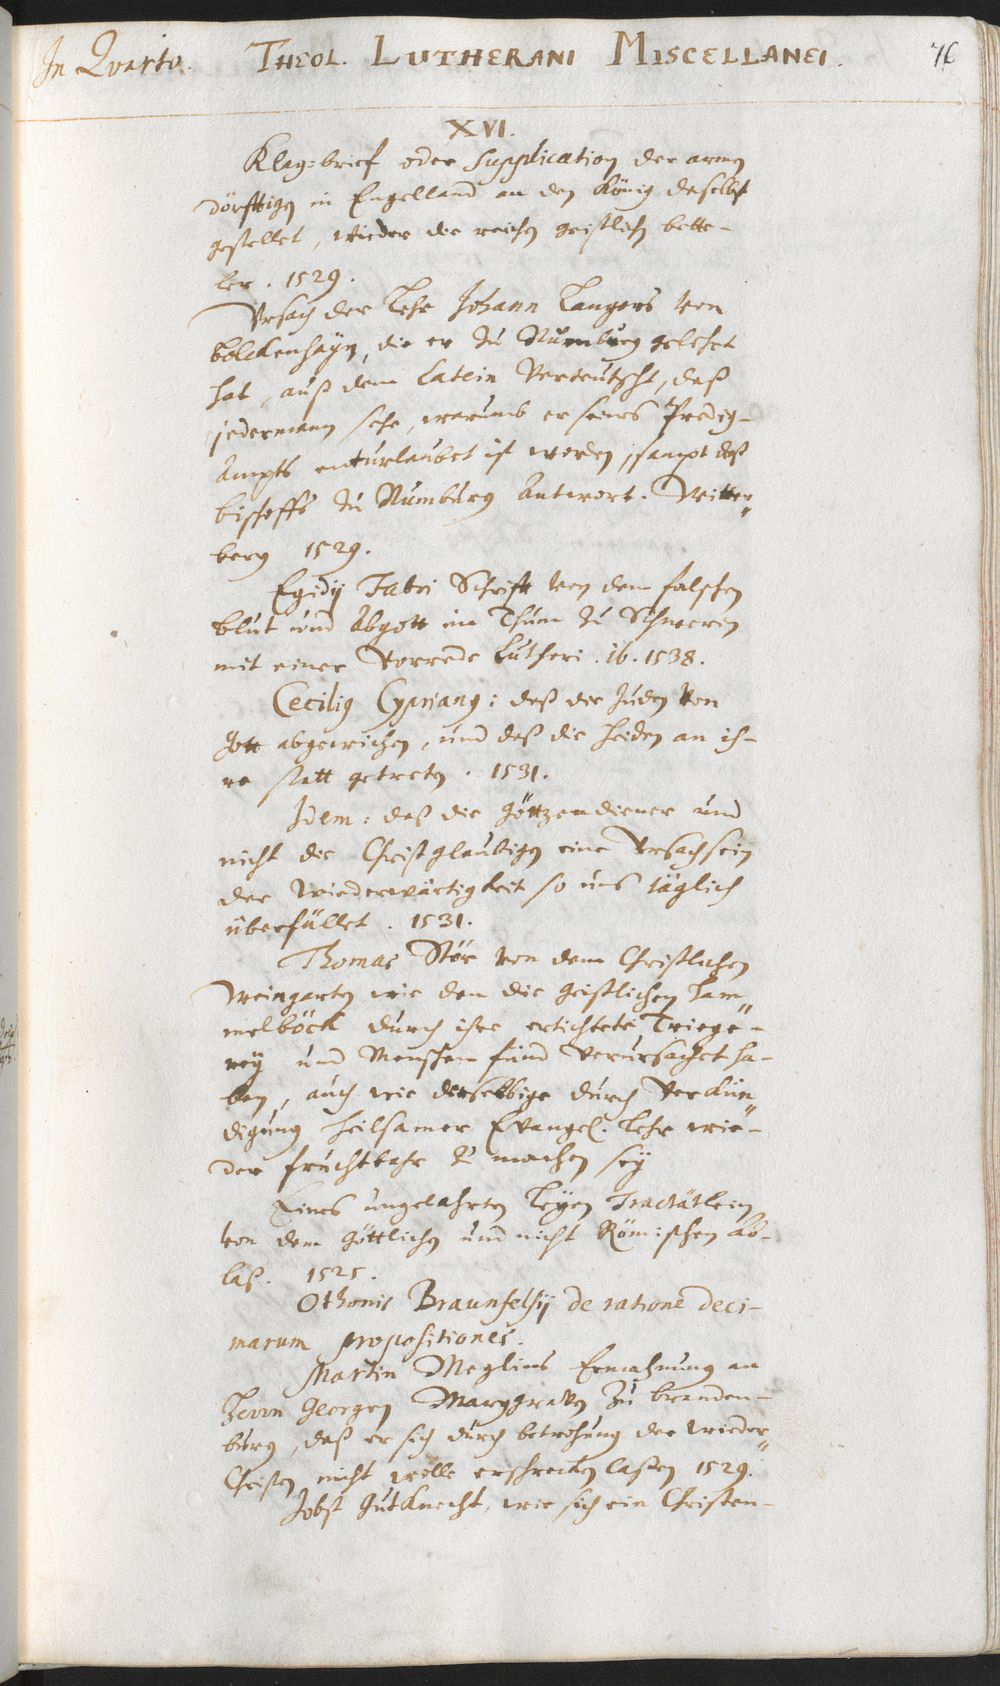 In Quarto. THEOL. LUTHERANI MISCELLANEI. 76
XVI.
Klag=brief oder Supplication der armen
dörfftigen in Engelland an den König daselbst
gestellet, wieder die reichen geistlichen bette-
ler. 1529.
Vrsach der Lehr Johann Langers von
bolckenhayn, die er zu Numburg gelehrt
hat, auß dem Latein Verteutscht, daß
jedermann sehe, warumb er seines Predig-
Ampts enturlaubet ist worden, sampt deß
bischoffs zu Numburg Antwort. Witten„
berg 1529.
Egidij Fabri Schrift von dem falschen
blut und Abgott im Thum zu Schweren
mit einer Vorrede Lutheri. ib. 1538.
Cecilig Cyprians: deß die Juden von
Gott abgewichen, und deß die Heiden an ih-
re statt getreten. 1531.
Idem: daß die Göttzendiener und
nicht die Christglaubigen eine Vrsach sein
der Wiederwärtigkeit so uns täglich
überfället. 1531.
Thomas Stör von dem Christlichen
Weingarten wie den die geistlichen Ham„
melböck durch ihre ertichtete Triege-
rey und Menschen fünd Verursachet ha-
ben, auch wie derselbige durch Verkün„
digung heilsamer Evangel. Lehr wie-
der fruchtbahr zu machen sey
Eines ungelahrten Leyen Tractätlein
von dem Göttlichen und nicht Römischen Ab-
laß. 1525.
Othonis Braunfelsij de ratione deci-
marum propositiones.
Martin Meglins Ermahnung an
Herrn Georgen Marggraven zu branden-
burg, daß er sich durch betrohung der wieder„
Christen nicht wölle erschrecken lassen 1529.
Jobst Gutknecht, wie sich ein Christen-